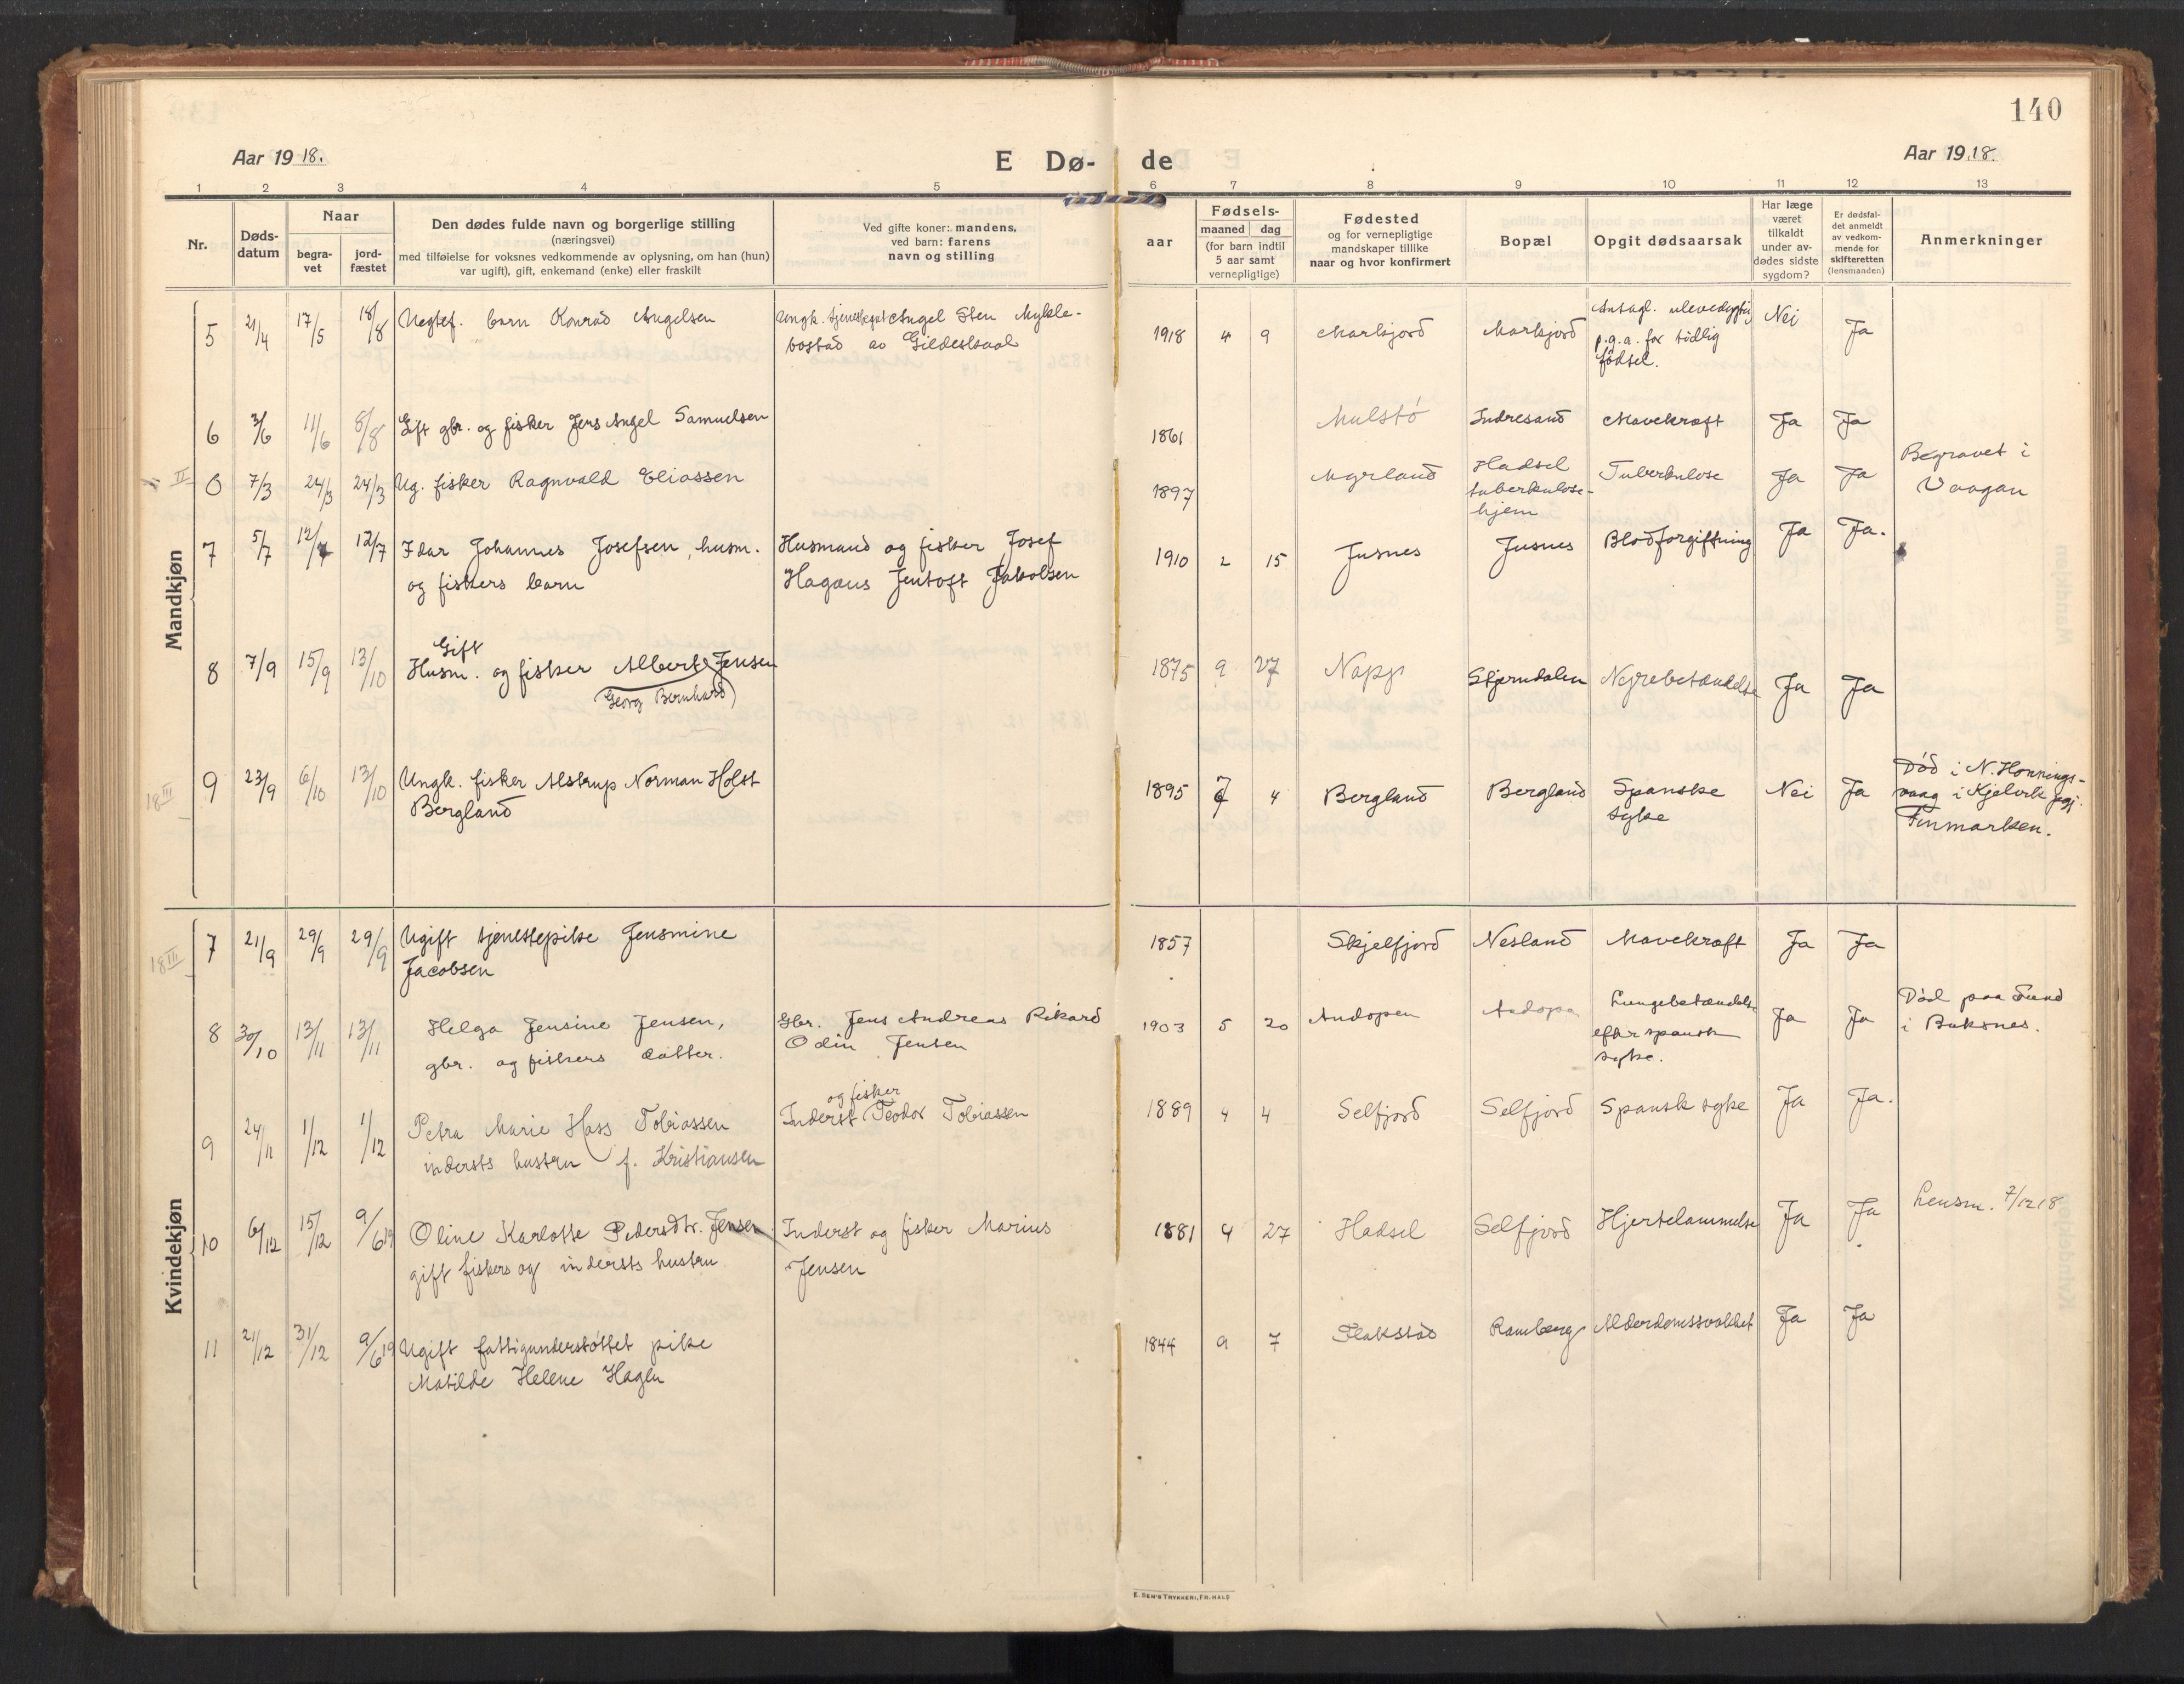 140
Aar 19 18.
E Dø- de
Aar 19 18.
1 2 3 4 5 6 7 8 9 10 11 12 13
Nr.
Døds-
datum
Naar
begra-
vet
jord-
fæstet
Den dødes fulde navn og borgerlige stilling
(næringsvei)
med tilføielse for voksnes vedkommende av oplysning, om han (hun)
var ugift), gift, enkemand (enke) eller fraskilt
Ved gifte koner: mandens,
ved barn: farens
navn og stilling
aar
Fødsels-
maaned dag
(for barn indtil
5 aar samt
vernepligtige)
Fødested
og for vernepligtige
mandskaper tillike
naar og hvor konfirmert
Bopæl
Opgit dødsaarsak
Har læge
været
tilkaldt
under av-
dødes sidste
sygdom?
Er dødsfal-
det anmeldt
av vedkom-
mende for
skifteretten
(lensmanden)
Anmerkninger
Mandkjøn
5 21/4 17/5 18/8 Uegtef. barn Konrad Angelsen Ungk. Angel Sten Mykle-
bostad av Gildeskaal
1918 4 9 Markjord Markjord Antagl. ulevedygtig
p.g.a. for tidlig
fødsel.
Nei Ja
6 3/6 11/6 8/8 Gift gbr. og fisker Jens Angel Samuelsen 1861 Mulstø Indresand Mavekræft Ja Ja
II 6 7/3 24/3 24/3 Ug. fisker Ragnvald Eliassen 1897 Myrland Hadsel
tuberkulose-
hjem
Tuberkulose Ja Ja Begravet i
Vaagan
7 5/7 12/7 12/7 Idar Johannes Josefsen, husm.
og fiskers barn
Husmand og fisker Josef
Hagaus Jentoft Jakobsen
1910 2 15 Jusnes Jusnes Blodforgiftning Ja Ja.
8 7/9 15/9 13/10 Gift
Husm. og fisker Albert Jensen
(Georg Bernhard)
1875 9 27 Napp Stjerndalen Nyrebetændelse Ja Ja
18 III 9 23/9 6/10 13/10 Ungk. fisker Alstrup Norman Holst
Bergland
1895 7 4 Bergland Bergland Spanske
syke
Nei Ja Død i N. Honnings-
vaag i Kjelvik pgj.
Finmarken.
Kvindekjøn
18 III 7 21/9 29/9 29/9 Ugift tjenestepike Jensmine
Jacobsen
1857 Skjelfjord Nesland Mavekræft Ja Ja
8 30/10 13/11 13/11 Helga Jensine Jensen,
gbr. og fiskers datter.
Gbr. Jens Andreas Rikard
Odin Jensen
1903 5 20 Andopen Andopen Lungebetændelse
efter spansk
syke.
Ja Ja Død paa Sund
i Buksnes.
9 24/11 1/12 1/12 Petra Marie Hass Tobiassen
indersts hustru f. Kristiansen
og fisker
Inderst Teodor Tobiassen
1889 4 4 Selfjord Selfjord Spansk syke Ja Ja.
10 6/12 15/12 9/6 19 Oline Karlotte Pedersdtr. Jensen
gift fiskers og indersts hustru
Inderst og fisker Marius
Jensen
1881 4 27 Hadsel Selfjord Hjertelammelse Ja Ja Lensm. 7/12 18
11 21/12 31/12 9/6 19 Ugift fattigunderstøttet pike
Matilde Helene Hagen
1844 9 7 Flakstad Ramberg Alderdomssvakhet Ja Ja
E. SEM'S TRYKKERI, FR.HALD